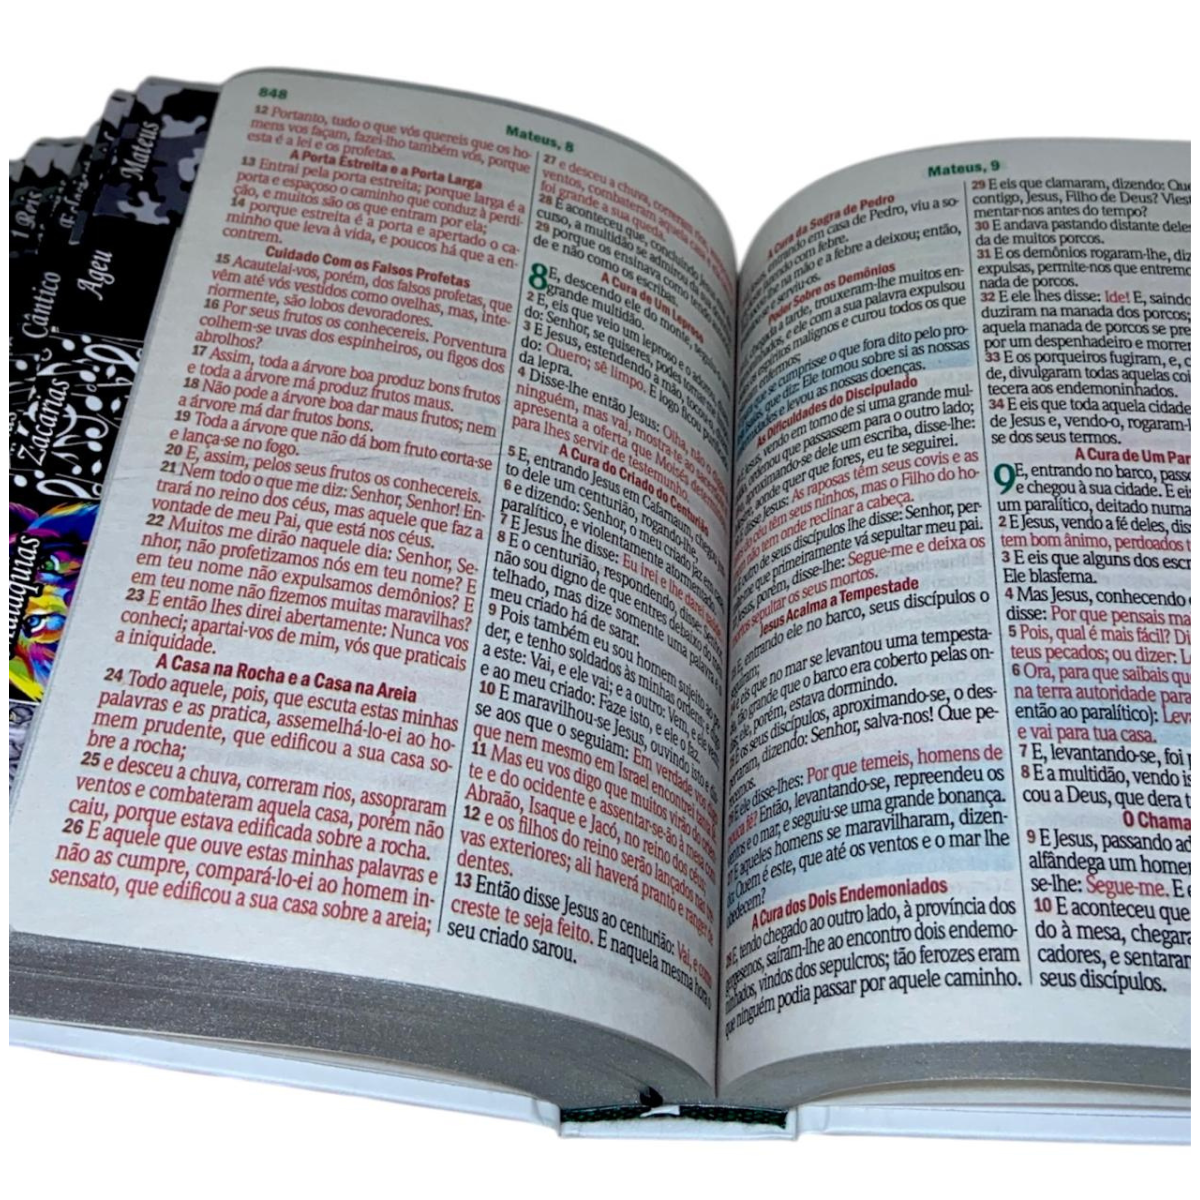 I Reis
Mateus
Cântico
Ageu
Zacarias
848
Mateus, 8
12 Portanto, tudo o que vós quereis que os ho-
mens vos façam, fazei-lho também vós, porque
esta é a lei e os profetas.
A Porta Estreita e a Porta Larga
13 Entrai pela porta estreita; porque larga é a
porta e espaçoso o caminho que conduz à perdi-
ção, e muitos são os que entram por ela;
14 porque estreita é a porta e apertado o ca-
minho que leva à vida, e poucos há que a en-
contrem.
Cuidado Com os Falsos Profetas
15 Acautelai-vos, porém, dos falsos profetas, que
vêm até vós vestidos como ovelhas, mas, inte-
riormente, são lobos devoradores.
16 Por seus frutos os conhecereis. Porventura
colhem-se uvas dos espinheiros, ou figos dos
abrolhos?
17 Assim, toda a árvore boa produz bons frutos
e toda a árvore má produz frutos maus.
18 Não pode a árvore boa dar maus frutos; nem
a árvore má dar frutos bons.
19 Toda a árvore que não dá bom fruto corta-se
e lança-se no fogo.
20 E, assim, pelos seus frutos os conhecereis.
21 Nem todo o que me diz: Senhor, Senhor! En-
trará no reino dos céus, mas aquele que faz a
vontade de meu Pai, que está nos céus.
22 Muitos me dirão naquele dia: Senhor, Se-
nhor, não profetizamos nós em teu nome? E
em teu nome não expulsamos demônios? E
em teu nome não fizemos muitas maravilhas?
23 E então lhes direi abertamente: Nunca vos
conheci; apartai-vos de mim, vós que praticais
a iniquidade.
A Casa na Rocha e a Casa na Areia
24 Todo aquele, pois, que escuta estas minhas
palavras e as pratica, assemelhá-lo-ei ao ho-
mem prudente, que edificou a sua casa so-
bre a rocha;
25 e desceu a chuva, correram rios, assopraram
ventos e combateram aquela casa, porém não
caiu, porque estava edificada sobre a rocha.
26 E aquele que ouve estas minhas palavras e
não as cumpre, compará-lo-ei ao homem in-
sensato, que edificou a sua casa sobre a areia;
27 e desceu a chuva, correram
ventos, combateram aquela casa,
foi grande a sua queda.
28 E aconteceu que, concluindo Jesus
curso, a multidão se admirou da sua
29 porque os ensinava como tendo
de e não como os escribas.
A Cura de Um Leproso
8 E, descendo ele do monte, seguiu
grande multidão.
2 E, eis que veio um leproso e o adorou
do: Senhor, se quiseres, podes tornar-me
3 E Jesus, estendendo a mão, tocou-o,
do: Quero; sê limpo. E logo ficou
da lepra.
4 Disse-lhe então Jesus: Olha, não o
ninguém, mas vai, mostra-te ao
apresenta a oferta que Moisés determinou
para lhes servir de testemunho.
A Cura do Criado do Centurião
5 E, entrando Jesus em Cafarnaum, chegou
to dele um centurião, rogando-lhe
6 e dizendo: Senhor, o meu criado jaz em
paralítico, e violentamente atormentado.
7 E Jesus lhe disse: Eu irei e lhe darei saúde.
8 E o centurião, respondendo, disse: Senhor,
não sou digno de que entres debaixo do meu
telhado, mas dize somente uma palavra e o
meu criado há de sarar.
9 Pois também eu sou homem sujeito ao po-
der, e tenho soldados às minhas ordens; e digo
a este: Vai, e ele vai; e a outro: Vem, e ele vem;
e ao meu criado: Faze isto, e ele o faz.
10 E maravilhou-se Jesus, ouvindo isto e dis-
se aos que o seguiam: Em verdade vos digo
que nem mesmo em Israel encontrei tanta fé.
11 Mas eu vos digo que muitos virão do orien-
te e do ocidente e assentar-se-ão à mesa com
Abraão, Isaque e Jacó, no reino dos céus;
12 e os filhos do reino serão lançados nas tre-
vas exteriores; ali haverá pranto e ranger de
dentes.
13 Então disse Jesus ao centurião: Vai, e como
creste te seja feito. E naquela mesma hora o
seu criado sarou.
Mateus, 9
A Cura da Sogra de Pedro
entrando em casa de Pedro, viu a so-
jazendo com febre.
na mão e a febre a deixou; então,
e serviu-os.
Poder Sobre os Demônios
chegada a tarde, trouxeram-lhe muitos en-
e ele com a sua palavra expulsou
espíritos malignos e curou todos os que
enfermos;
se cumprisse o que fora dito pelo pro-
que diz: Ele tomou sobre si as nossas
e levou as nossas doenças.
As Dificuldades do Discipulado
Jesus, vendo em torno de si uma grande mul-
ordenou que passassem para o outro lado;
aproximando-se dele um escriba, disse-lhe:
aonde quer que fores, eu te seguirei.
disse Jesus: As raposas têm seus covis e as
do céu têm seus ninhos, mas o Filho do ho-
não tem onde reclinar a cabeça.
outro de seus discípulos lhe disse: Senhor, per-
me que primeiramente vá sepultar meu pai.
Jesus, porém, disse-lhe: Segue-me e deixa os
mortos sepultar os seus mortos.
Jesus Acalma a Tempestade
E, entrando ele no barco, seus discípulos o
seguiram;
eis que no mar se levantou uma tempesta-
tão grande que o barco era coberto pelas on-
ele, porém, estava dormindo.
E os seus discípulos, aproximando-se, o des-
pertaram, dizendo: Senhor, salva-nos! Que pe-
recemos.
E ele disse-lhes: Por que temeis, homens de
pouca fé? Então, levantando-se, repreendeu os
ventos e o mar, e seguiu-se uma grande bonança.
E aqueles homens se maravilharam, dizen-
do: Quem é este, que até os ventos e o mar lhe
obedecem?
A Cura dos Dois Endemoniados
E, tendo chegado ao outro lado, à província dos
gergesenos, saíram-lhe ao encontro dois endemo-
ninhados, vindos dos sepulcros; tão ferozes eram
que ninguém podia passar por aquele caminho.
29 E eis que clamaram, dizendo: Que
contigo, Jesus, Filho de Deus? Viest
mentar-nos antes do tempo?
30 E andava pastando distante deles
da de muitos porcos.
31 E os demônios rogaram-lhe, diz
expulsas, permite-nos que entremo
nada de porcos.
32 E ele lhes disse: Ide! E, saindo
duziram na manada dos porcos;
aquela manada de porcos se pre
por um despenhadeiro e morrer
33 E os porqueiros fugiram, e, c
de, divulgaram todas aquelas coi
tecera aos endemoninhados.
34 E eis que toda aquela cidade
de Jesus e, vendo-o, rogaram-l
se dos seus termos.
A Cura de Um Par
9 E, entrando no barco, passo
e chegou à sua cidade. E eis
um paralítico, deitado numa
2 E Jesus, vendo a fé deles, dis
tem bom ânimo, perdoados t
3 E eis que alguns dos escr
Ele blasfema.
4 Mas Jesus, conhecendo
disse: Por que pensais ma
5 Pois, qual é mais fácil? Di
teus pecados; ou dizer: L
6 Ora, para que saibais qu
na terra autoridade para
então ao paralítico): Leva
e vai para tua casa.
7 E, levantando-se, foi
8 E a multidão, vendo is
cou a Deus, que dera t
O Chama
9 E Jesus, passando ad
alfândega um homem
se-lhe: Segue-me. E
10 E aconteceu que
do à mesa, chegara
cadores, e sentaram
seus discípulos.